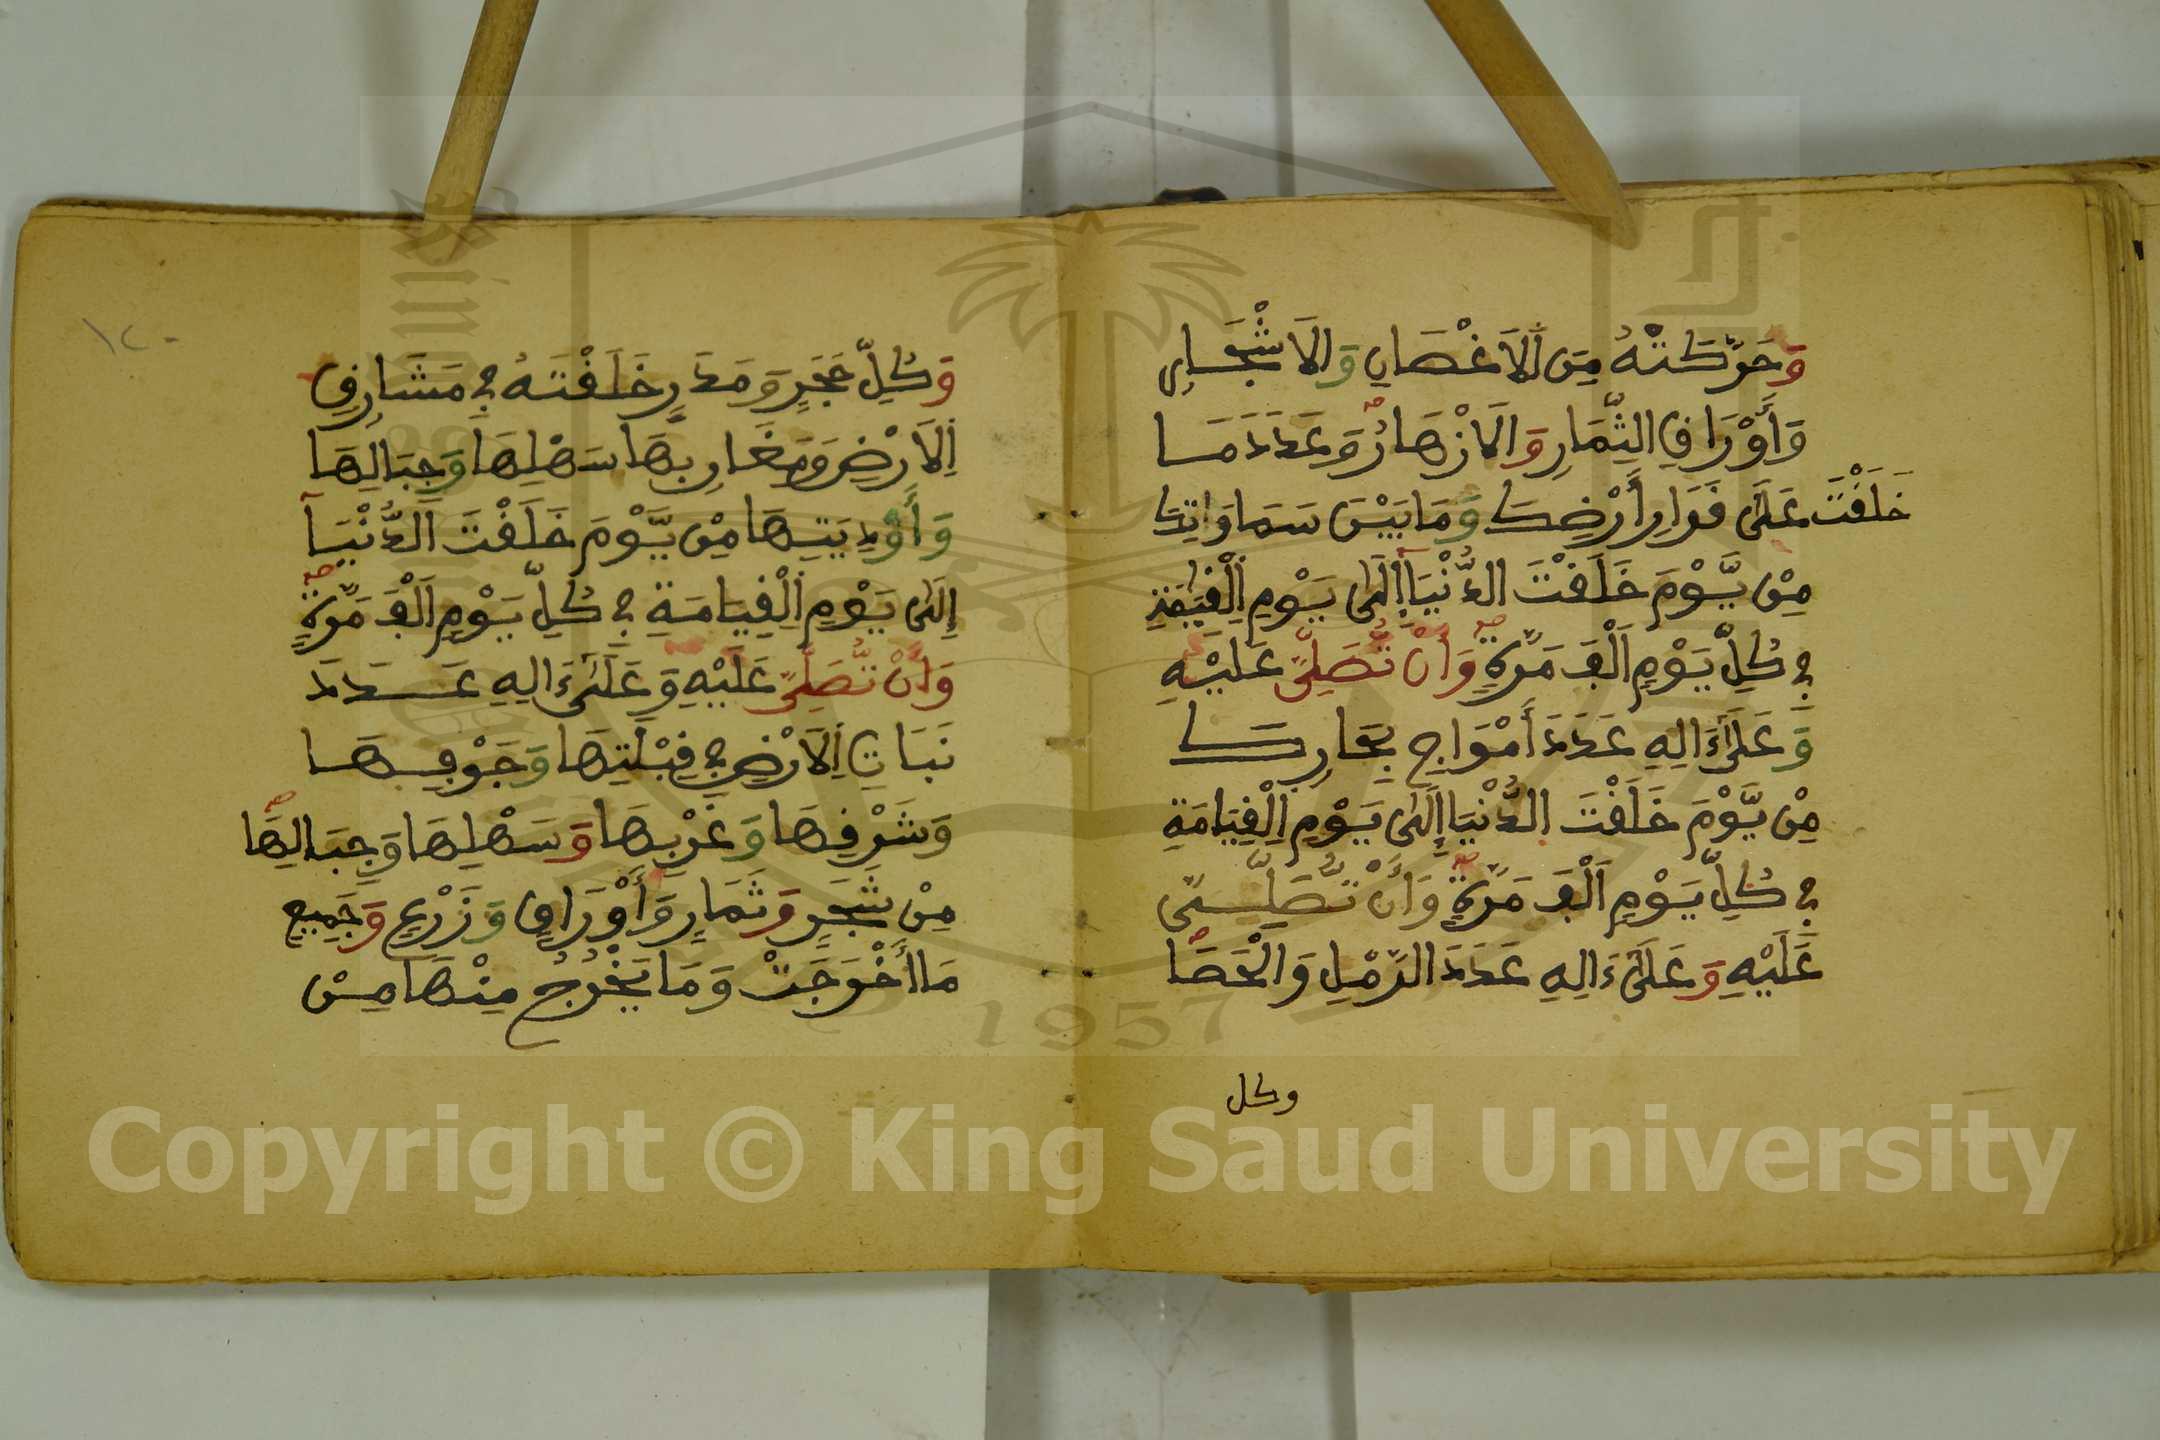 وَحَرَّكَتْهُ مِنَ الَاغْصَانِ وَالَاشْجَارِ
وَأَوْرَاقِ الثِّمَارِ وَالَازْهَارِ وَعَدَدَ مَا
خَلَقْتَ عَلَى قَرَارِ أَرْضِكَ وَمَا بَيْنَ سَمَاوَاتِكَ
مِنْ يَّوْمِ خَلَقْتَ الدُّنْيَا إِلَى يَوْمِ اِلْقِيَٰمَةِ
فِي كُلِّ يَوْمٍ اَلْفَ مَرَّةٍ وَأَنْ تُّصَلِّيَ عَلَيْهِ
وَعَلَىٰ ءَالِهِ عَدَدَ أَمْوَاجِ بِحَارِكَ
مِنْ يَّوْمَ خَلَقْتَ الدُّنْيَا إِلَى يَوْمِ اِلْقِيَامَةِ
فِي كُلِّ يَوْمٍ اَلْفَ مَرَّةٍ وَأَنْ تُّصَلِّيَ
عَلَيْهِ وَعَلَىٰ ءَالِهِ عَدَدَ الرَّمْلِ وَالْحَصَا
وكل
١٢٠
وَكُلِّ حَجَرٍ وَمَدَرٍ خَلَقْتَهُ فِي مَشَارِقِ
اِلَارْضِ وَمَغَارِبِهَا سَهْلِهَا وَجِبَالِهَا
وَأَوْدِيَتِهَا مِنْ يَّوْمَ خَلَقْتَ الدُّنْيَآ
إِلَى يَوْمِ اِلْقِيَامَةِ فِي كُلِّ يَوْمٍ اَلْفَ مَرَّةٍ
وَأَنْ تُّصَلِّيَ عَلَيْهِ وَعَلَىٰ ءَالِهِ عَدَدَ
نَبَاتِ اِلَارْضِ فِي قِبْلَتِهَا وَجَوْفِهَا
وَشَرْقِهَا وَغَرْبِهَا وَسَهْلِهَا وَجِبَالِهَا
مِنْ شَجَرٍ وَثَمَارٍ وَأَوْرَاقٍ وَزَرْعٍ وَجَمِيعِ
مَا أَخْرَجَتْ وَمَا يَخْرُجُ مِنْهَا مِنْ
1957
Copyright © King Saud University